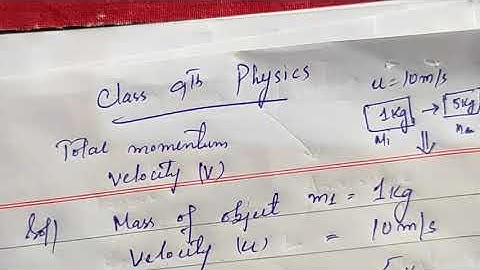 Class 9th Physics
u = 10m/s
1Kg → 5Kg
M1
Total momentum
velocity (v)
Sol) Mass of object m1 = 1kg
Velocity (u) = 10m/s